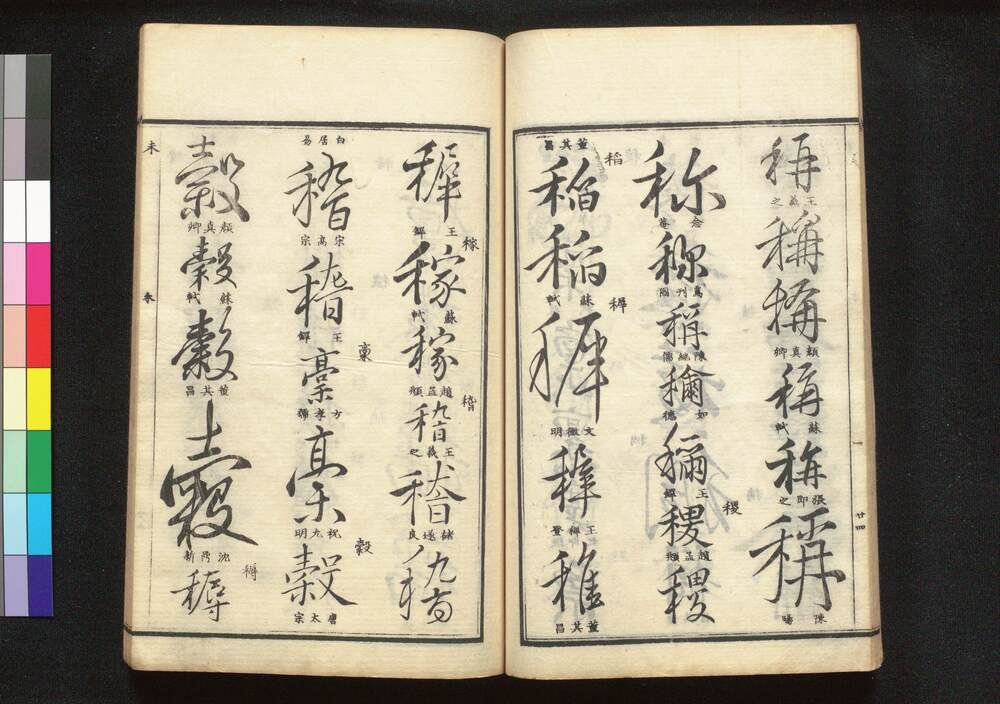 稱
王羲之
稱
稱
顏真卿
稱
蘇軾
稱
張即之
稱
陳暘
廿四
称
念菴
称
稱
陳繼儒
穪
如德
穪
王鐸
稷
稷
趙孟頫
稷
董其昌
稻
稻
稻
蘇軾
穉
穉
文徵明
穉
王穉登
稚
董其昌
穉
王鐸
稼
稼
蘇軾
稼
趙孟頫
稽
稽
王羲之
稽
褚遂良
稽
白居易
稽
宋高宗
稽
王鐸
稾
稾
方孝孺
稾
祝允明
穀
穀
唐太宗
穀
顏真卿
穀
蘇軾
穀
董其昌
穀
沈鼎新